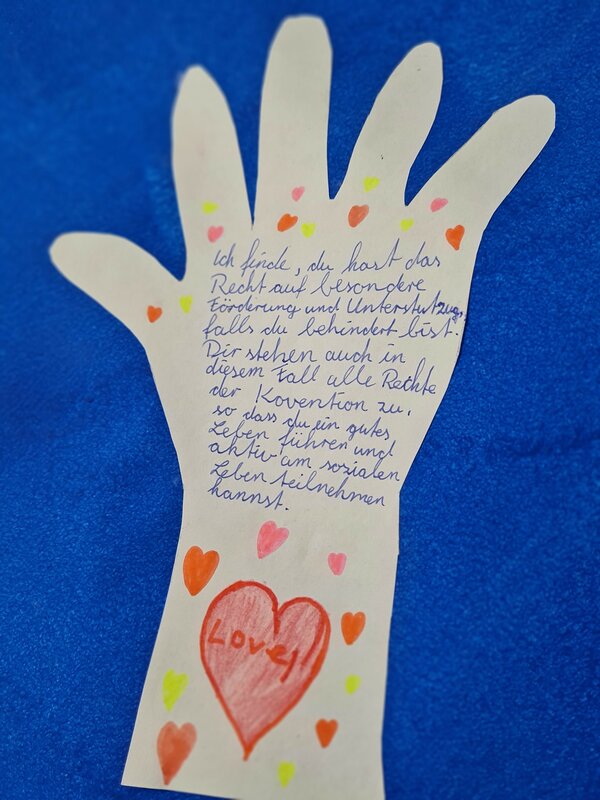 Ich finde, du hast das
Recht auf besondere
Förderung und Unterstutzug,
falls du behindert bist.
Dir stehen auch in
diesem Fall alle Rechte
der Kovention zu,
so dass du ein gutes
Leben führen und
aktiv am sozialen
Leben teilnehmen
kannst.
Love!